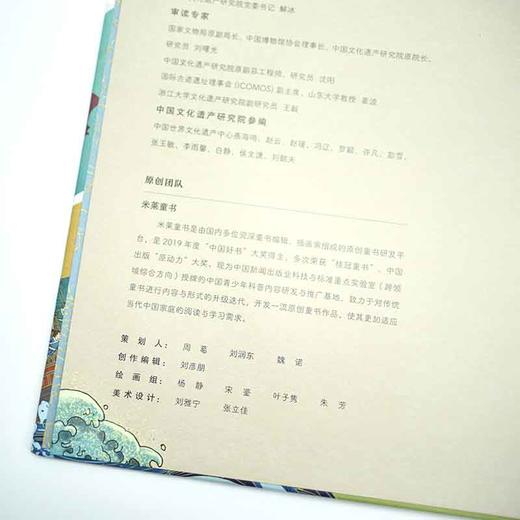 化遗产研究院党委书记 解冰
审读专家
国家文物局原副局长、中国博物馆协会理事长、中国文化遗产研究院原院长、
研究员 刘曙光
中国文化遗产研究院原副总工程师、研究员 沈阳
国际古迹遗址理事会(ICOMOS)副主席、山东大学教授 姜波
浙江大学文化遗产研究院副研究员 王毅
中国文化遗产研究院参编
中国世界文化遗产中心燕海鸣、赵云、赵瑶、冯辽、罗颖、许凡、彭雪、
张玉敏、李雨馨、白静、侯文潇、刘懿夫
原创团队
米莱童书
米莱童书是由国内多位资深童书编辑、插画家组成的原创童书研发平
台，是2019年度“中国好书”大奖得主，多次荣获“桂冠童书”、中国
出版“原动力”大奖。现为中国新闻出版业科技与标准重点实验室（跨领
域综合方向）授牌的中国青少年科普内容研发与推广基地，致力于对传统
童书进行内容与形式的升级迭代，开发一流原创童书作品，使其更加适应
当代中国家庭的阅读与学习需求。
策划人：周 刘润东 魏诺
创作编辑：刘彦朋
绘画组：杨静 宋鉴 叶子隽 朱芳
美术设计：刘雅宁 张立佳